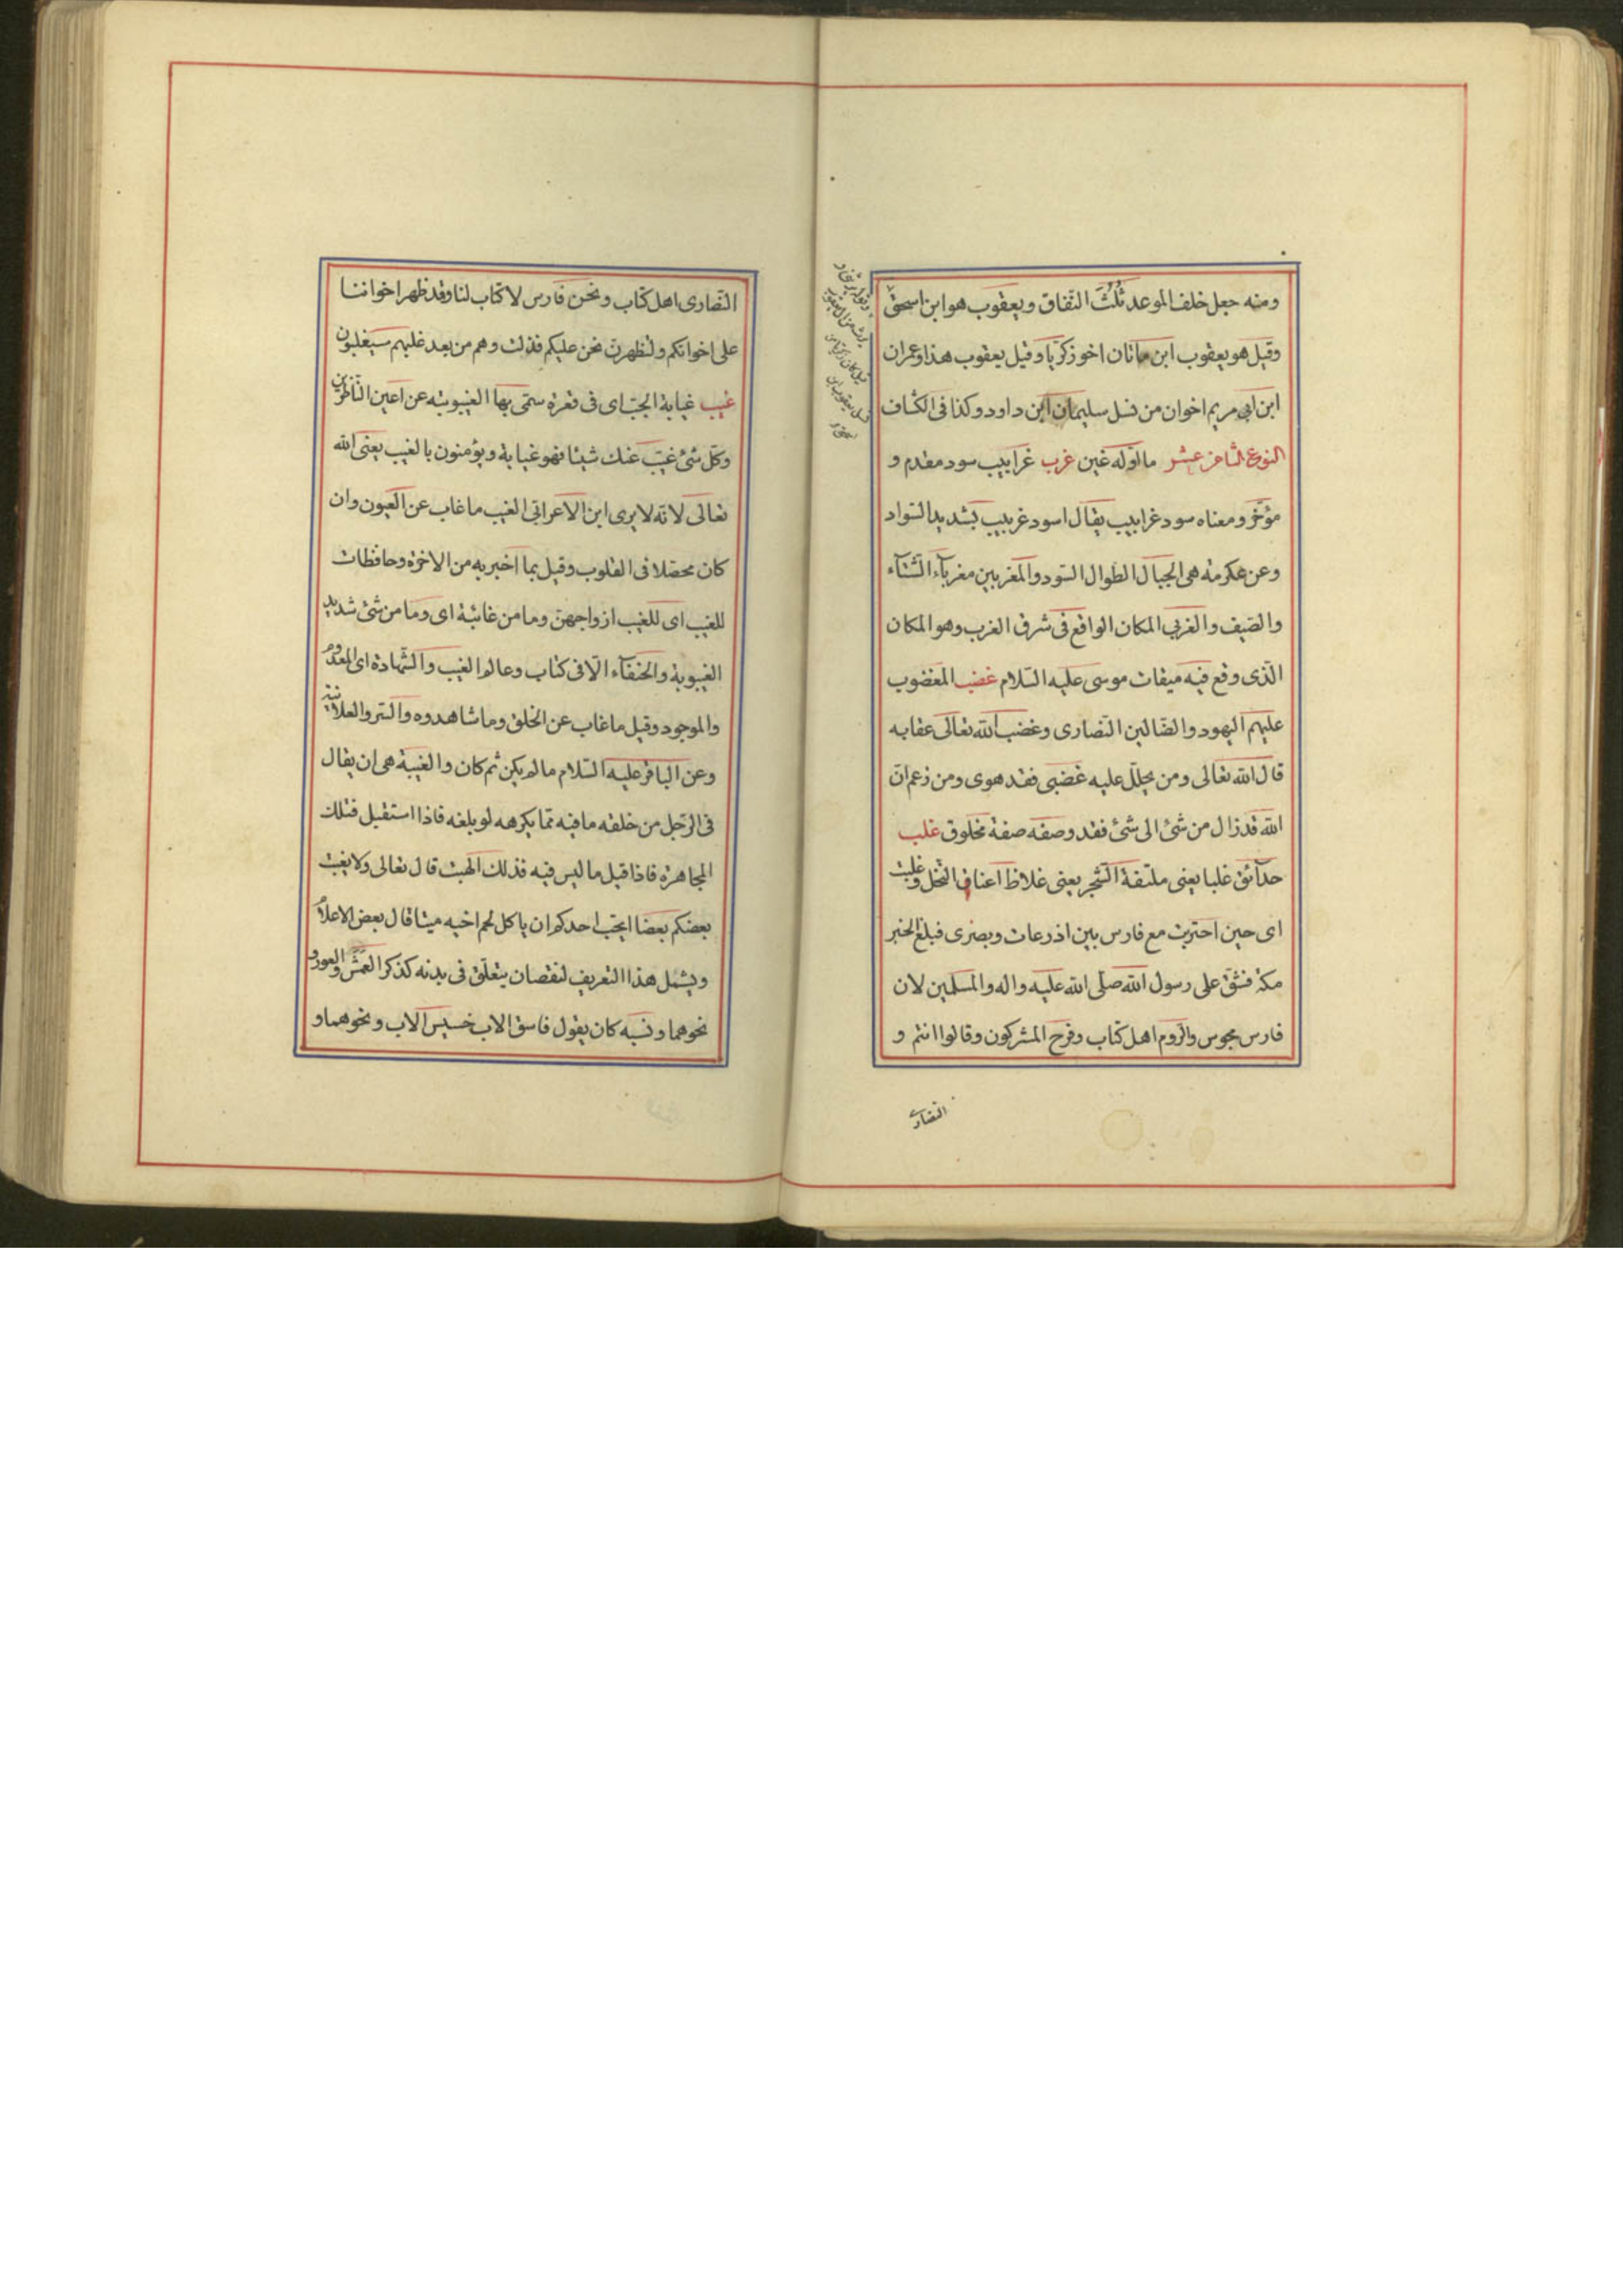 ومنه جعل خلف الموعد ثلث النفاق ويعقوب هو ابن اسحق
وقيل هو يعقوب ابن ماتان اخو زكريا وقيل يعقوب هذا وعمران
ابن ابى مريم اخوان من نسل سليمان ابن داود وكذا فى الكشاف
النوع الثامن عشر ما اوله غين غرب غرابيب سود مقدم و
مؤخر ومعناه سود غرابيب يقال اسود غربيب بشديد السواد
وعن عكرمة هى الجبال الطوال السود والمغربين مغرباء الشتاء
والصيف والغربى المكان الواقع فى شرق الغرب وهو المكان
الذى وقع فيه ميقات موسى عليه السلام غضب المغضوب
عليهم اليهود والضالين النصارى وغضب الله تعالى عقابه
قال الله تعالى ومن يحلل عليه غضبى فقد هوى ومن زعم ان
الله قد زال من شئ الى شئ فقد وصفه صفة مخلوق غلب
حدآئق غلبا يعنى ملتفة الشجر يعنى غلاظ اعناق النخل وغلبت
اى حين احتربت مع فارس بين اذرعات وبصرى فبلغ الخبر
مكة فشق على رسول الله صلى الله عليه واله والمسلمين لان
فارس مجوس والروم اهل كتاب وفرح المشركون وقالوا انتم و
النصارى
النصارى اهل كتاب ونحن فارس لا كتاب لنا وقد ظهر اخواننا
على اخوانكم ولنظهرن نحن عليكم فنزلت وهم من بعد غلبهم سيغلبون
غيب غيابة الجب اى فى قعره سمى بها الغيبوبته عن اعين الناظرين
وكل شئ غيب عنك شيئا فهو غيابة ويؤمنون بالغيب يعنى الله
تعالى لانه لا يرى ابن الاعرابى الغيب ما غاب عن العيون وان
كان محصلا فى القلوب وقيل بما اخبر به من الاخرة وحافظات
للغيب اى للغيب ازواجهن وما من غائبة اى وما من شئ شديد
الغيبوبة والخفآء الا فى كتاب وعالم الغيب والشهادة اى المعدوم
والموجود وقيل ما غاب عن الخلق وما شاهدوه والسر والعلانية
وعن الباقر عليه السلام ما لم يكن ثم كان والغيبة هى ان يقال
فى الرجل من خلفه ما فيه مما يكرهه لو بلغه فاذا استقبل فتلك
المجاهرة فاذا قيل ما ليس فيه فذلك البهت قال تعالى ولا يغتب
بعضكم بعضا ايحب احدكم ان ياكل لحم اخيه ميتا قال بعض الاعلام
ويشمل هذا التعريف لنقصان يتعلق فى بدنه كذكر العمش والعور و
نحوهما ونسبه كان يقول فاسق الاب خسيس الاب ونحوهما و